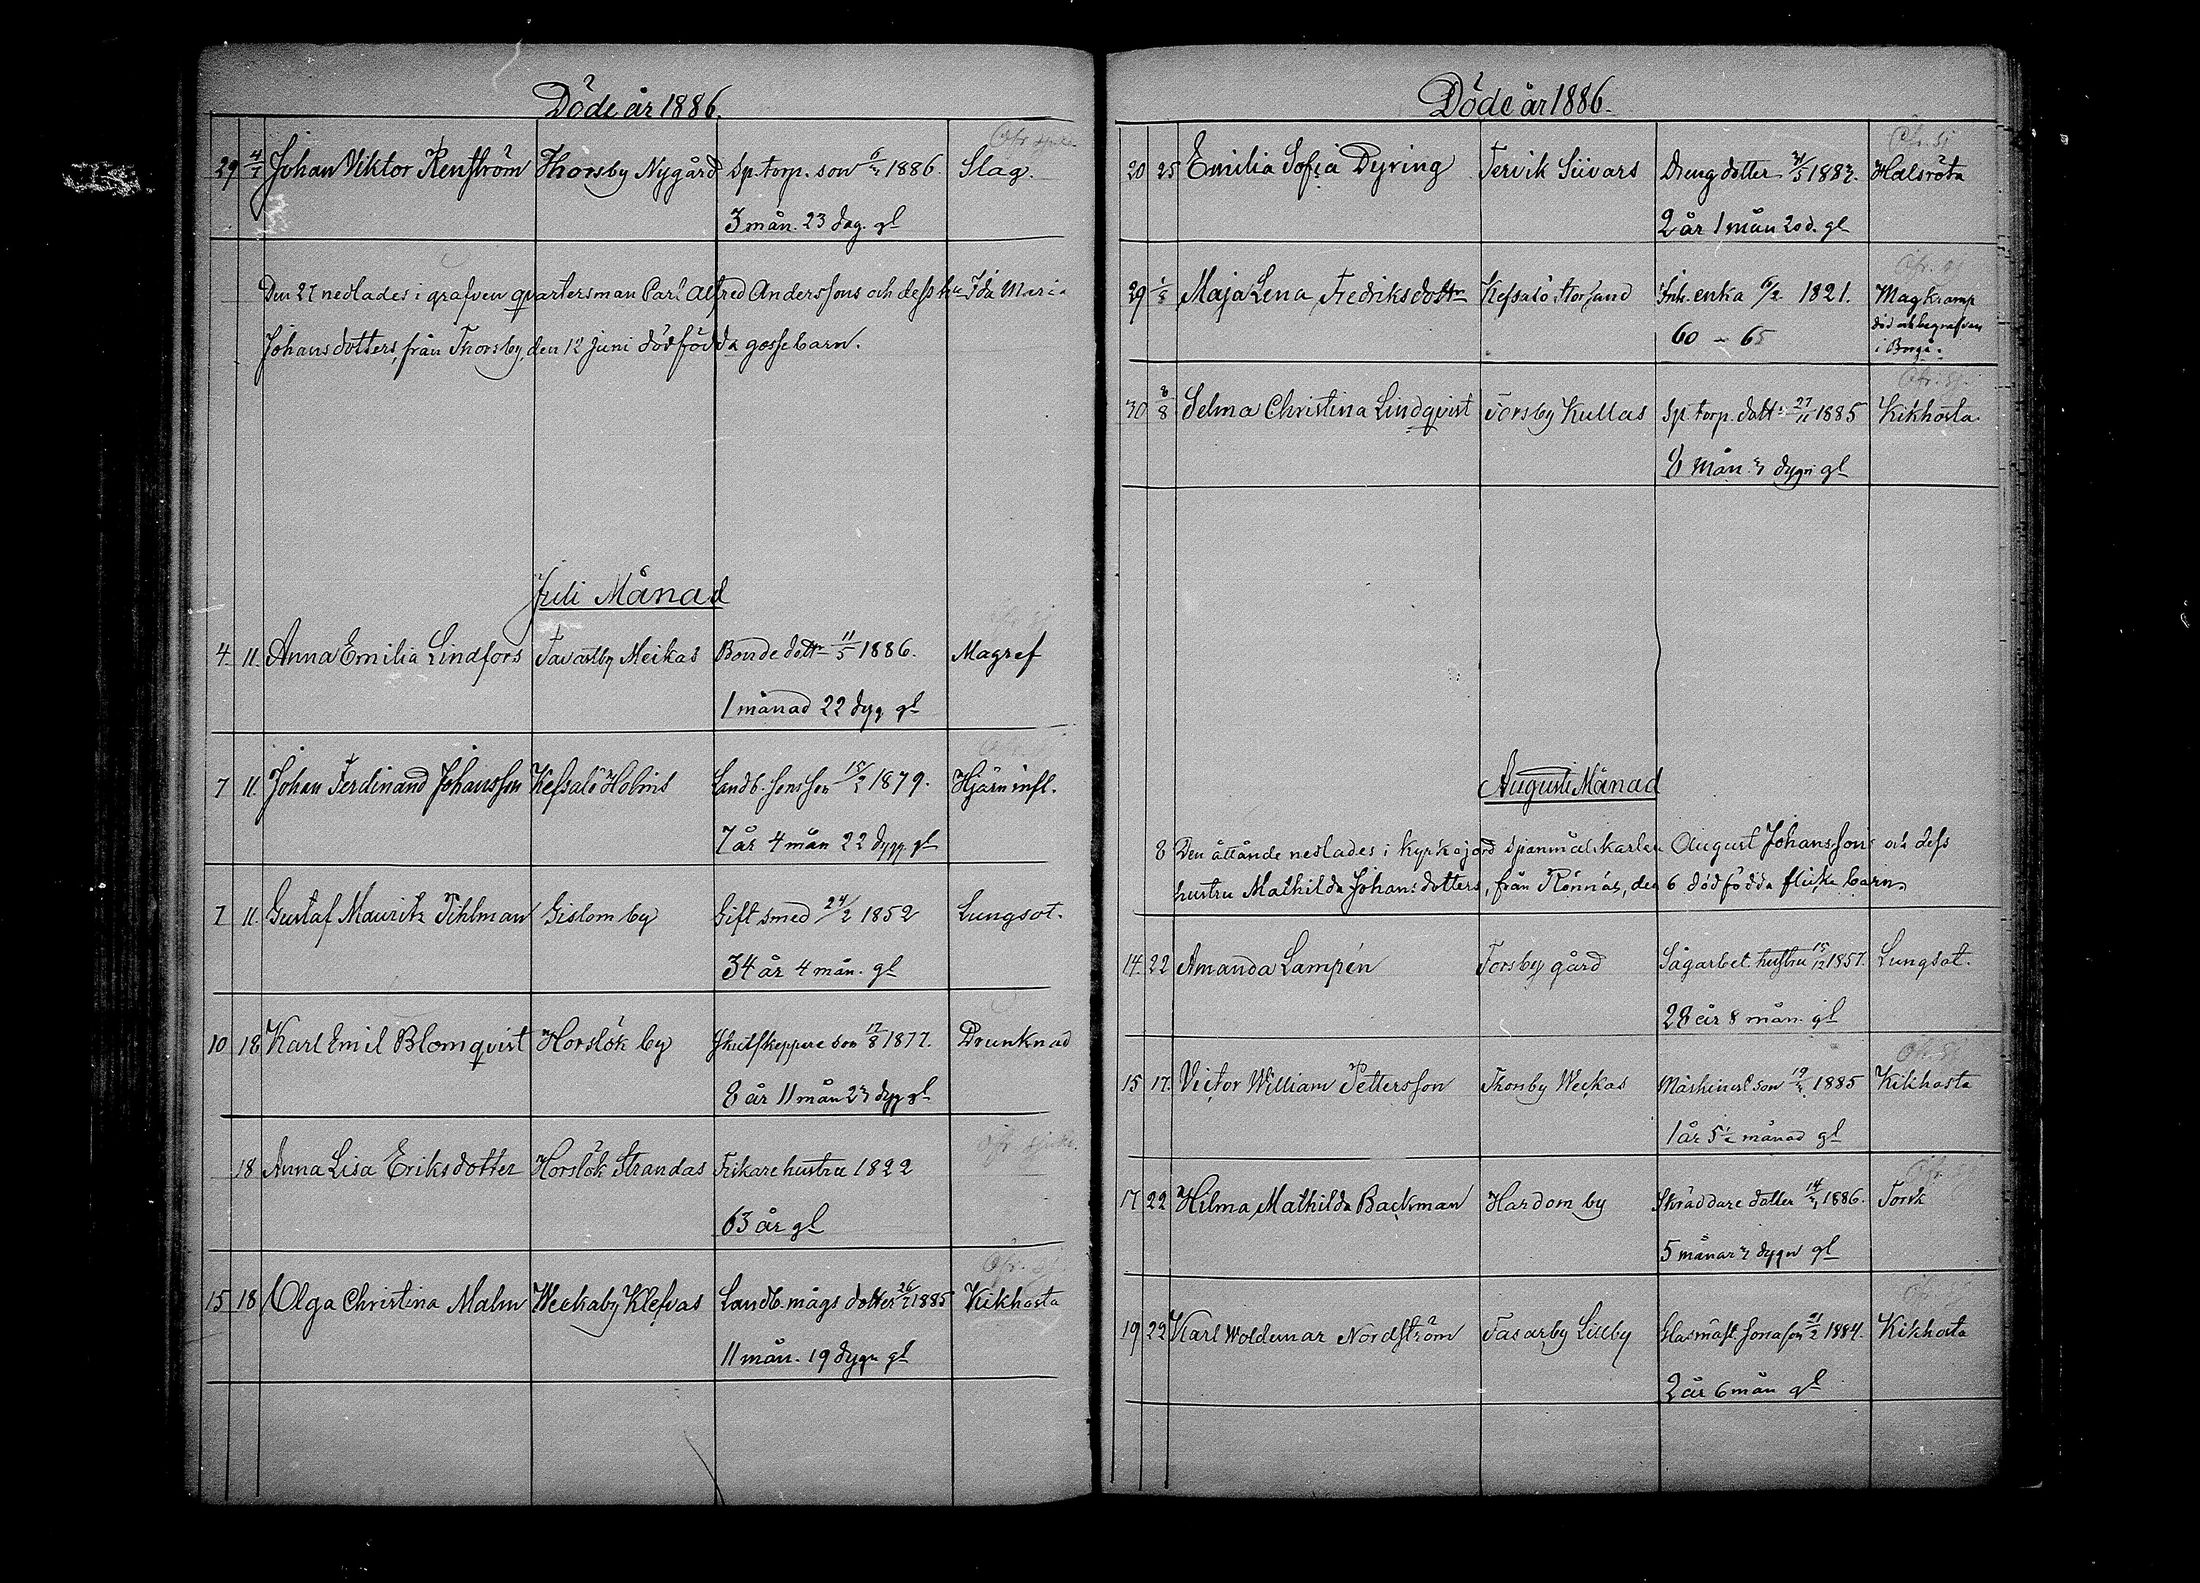 Döde år 1886.
Öfr. sjukd.
29 4/7 Johan Viktor Renström Thorsby Nygård Sp. torp. son 6/3 1886. Slag.
3 mån. 23 dag. gl
Den 27 nedlades i grafven qvartersman Carl Alfred Anderssons och dess hu Ida Maria
Johansdotters, från Thorsby, den 12 Juni dödfödda gossebarn.
Juli Månad
4. 11. Anna Emilia Lindfors Tavastby Meikas Bonde dottr 11/5 1886. Magref
1 månad 22 dyg gl
7 11. Johan Ferdinand Johansson Kessalö Holms Landb. sonson 15/2 1879. Hjärninfl.
7 år 4 mån 22 dygg gl
7 11. Gustaf Mauritz Tihlman Gislom by Gift smed 24/2 1852 Lungsot.
34 år 4 mån. gl
10 18 Karl Emil Blomqvist Horslök by Skutskeppare son 17/8 1877. Drunknad
8 år 11 mån 23 dyg gl
18 Anna Lisa Eriksdotter Horslök Strandas Fiskare hustru 1822 Öfr. sjukd.
63 år gl
Öfr. sj
15 18 Olga Christina Malm Weckaby Klefvas Landb. mågs dotter 26/7 1885 Kikhosta
11 mån. 19 dygn gl
Döde år 1886.
Öfr. sj
20 25 Emilia Sofia Dyring Tervik Siivars Dreng dotter 31/5 1883. Halsröta
2 år 1 mån 20 d. gl
Öfr. sj
29 1/8 Maja Lena Fredriksdottr Kessalö Storsand Inh. enka 6/2 1821. Magkramp
död och begrafven
60 – 65 i Borgå.
Öfr. sj.
30 8/8 Selma Christina Lindqvist Torsby Kullas Sp torp. dott: 27/11 1885 Kikhosta
8 mån. 3 dygn gl
Augusti Månad
8 Den åttånde nedlades i kyrkojord spanmålskarlen August Johanssons och dess
hustru Mathilda Johansdotters, från Rönnäs, den 6 dödfödda flicka barn.
14. 22 Amanda Lampén Torsby gård Sågarbet. hustru 15/12 1857. Lungsot.
28 år 8 mån. gl
Öfr. sj
15 17. Victor William Pettersson Thorsby Weckas Maskinist son 19/2 1885 Kikhosta
1 år 5 1/2 månad gl
Öfr. sj
17 22 Hilma Mathilda Backman Hardom by Skräddare dotter 14/3 1886. Torsk
5 månar 3 dygn gl
Öfr. sj
19 22 Karl Woldemar Nordström Tasarby Lillby Slasmäst. sonason 21/2 1884. Kikhosta
2 år 6 mån gl